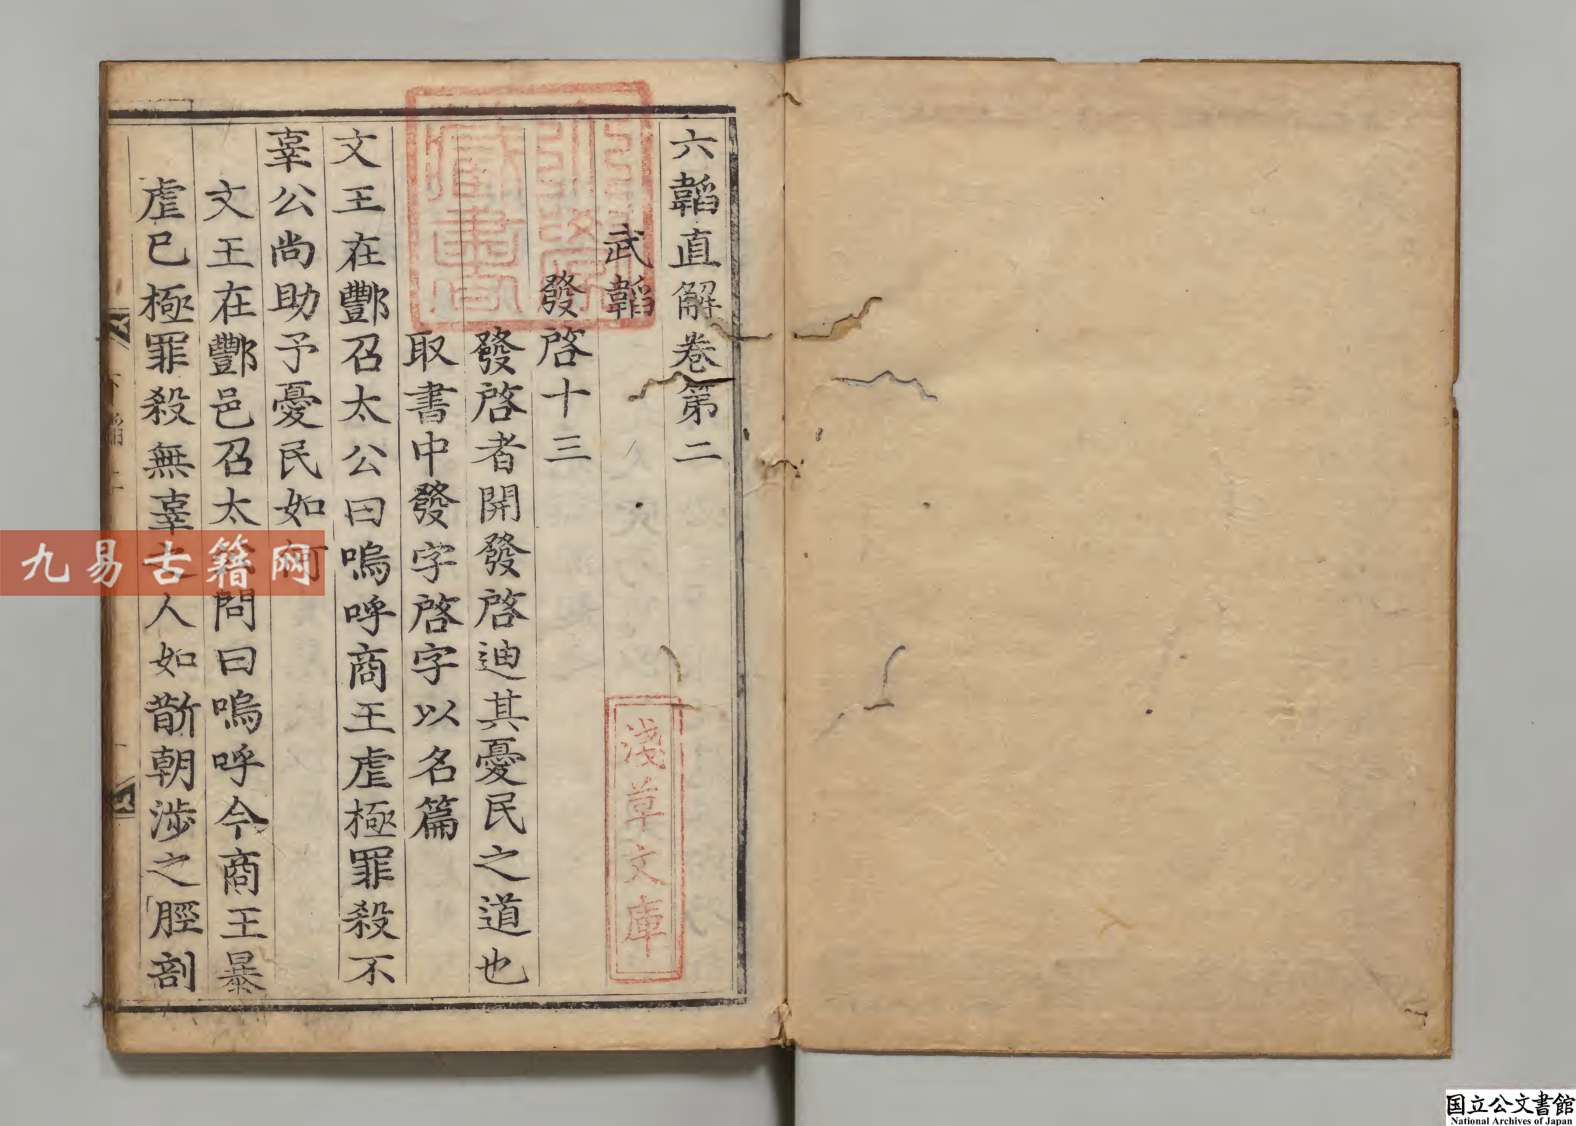 六韜直解卷第二
武韜
發啓十三
發啓者開發啓迪其憂民之道也
取書中發字啓字以名篇
文王在酆召太公曰嗚呼商王虐極罪殺不
辜公尚助予憂民如何
文王在酆邑召太公問曰嗚呼今商王暴
虐已極罪殺無辜之人如斮朝涉之脛剖
淺草文庫
藏書
九易古籍网
国立公文書館
National Archives of Japan